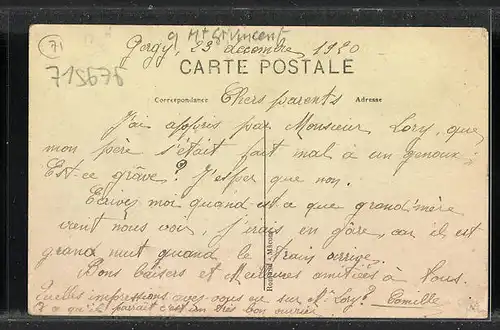 71
g Mt St Vincent
715676
Gergy, 23 décembre 1920
CARTE POSTALE
Correspondance
Adresse
Chers parents
J'ai appris par Monsieur Lory, que
mon père s'était fait mal à un genoux.
Est-ce grâve? J'espèr que non.
Ecrivez moi quand est ce que grand'mère
vient nous voir, j'irais en gâre, car il est
grand nuit quand le train arrive.
Bons baisers et Meilleures amitiées à tous.
Quelles impressions avez-vous eue sur Mr Lory? Camille
Il paraît c'est un très bon ouvrier